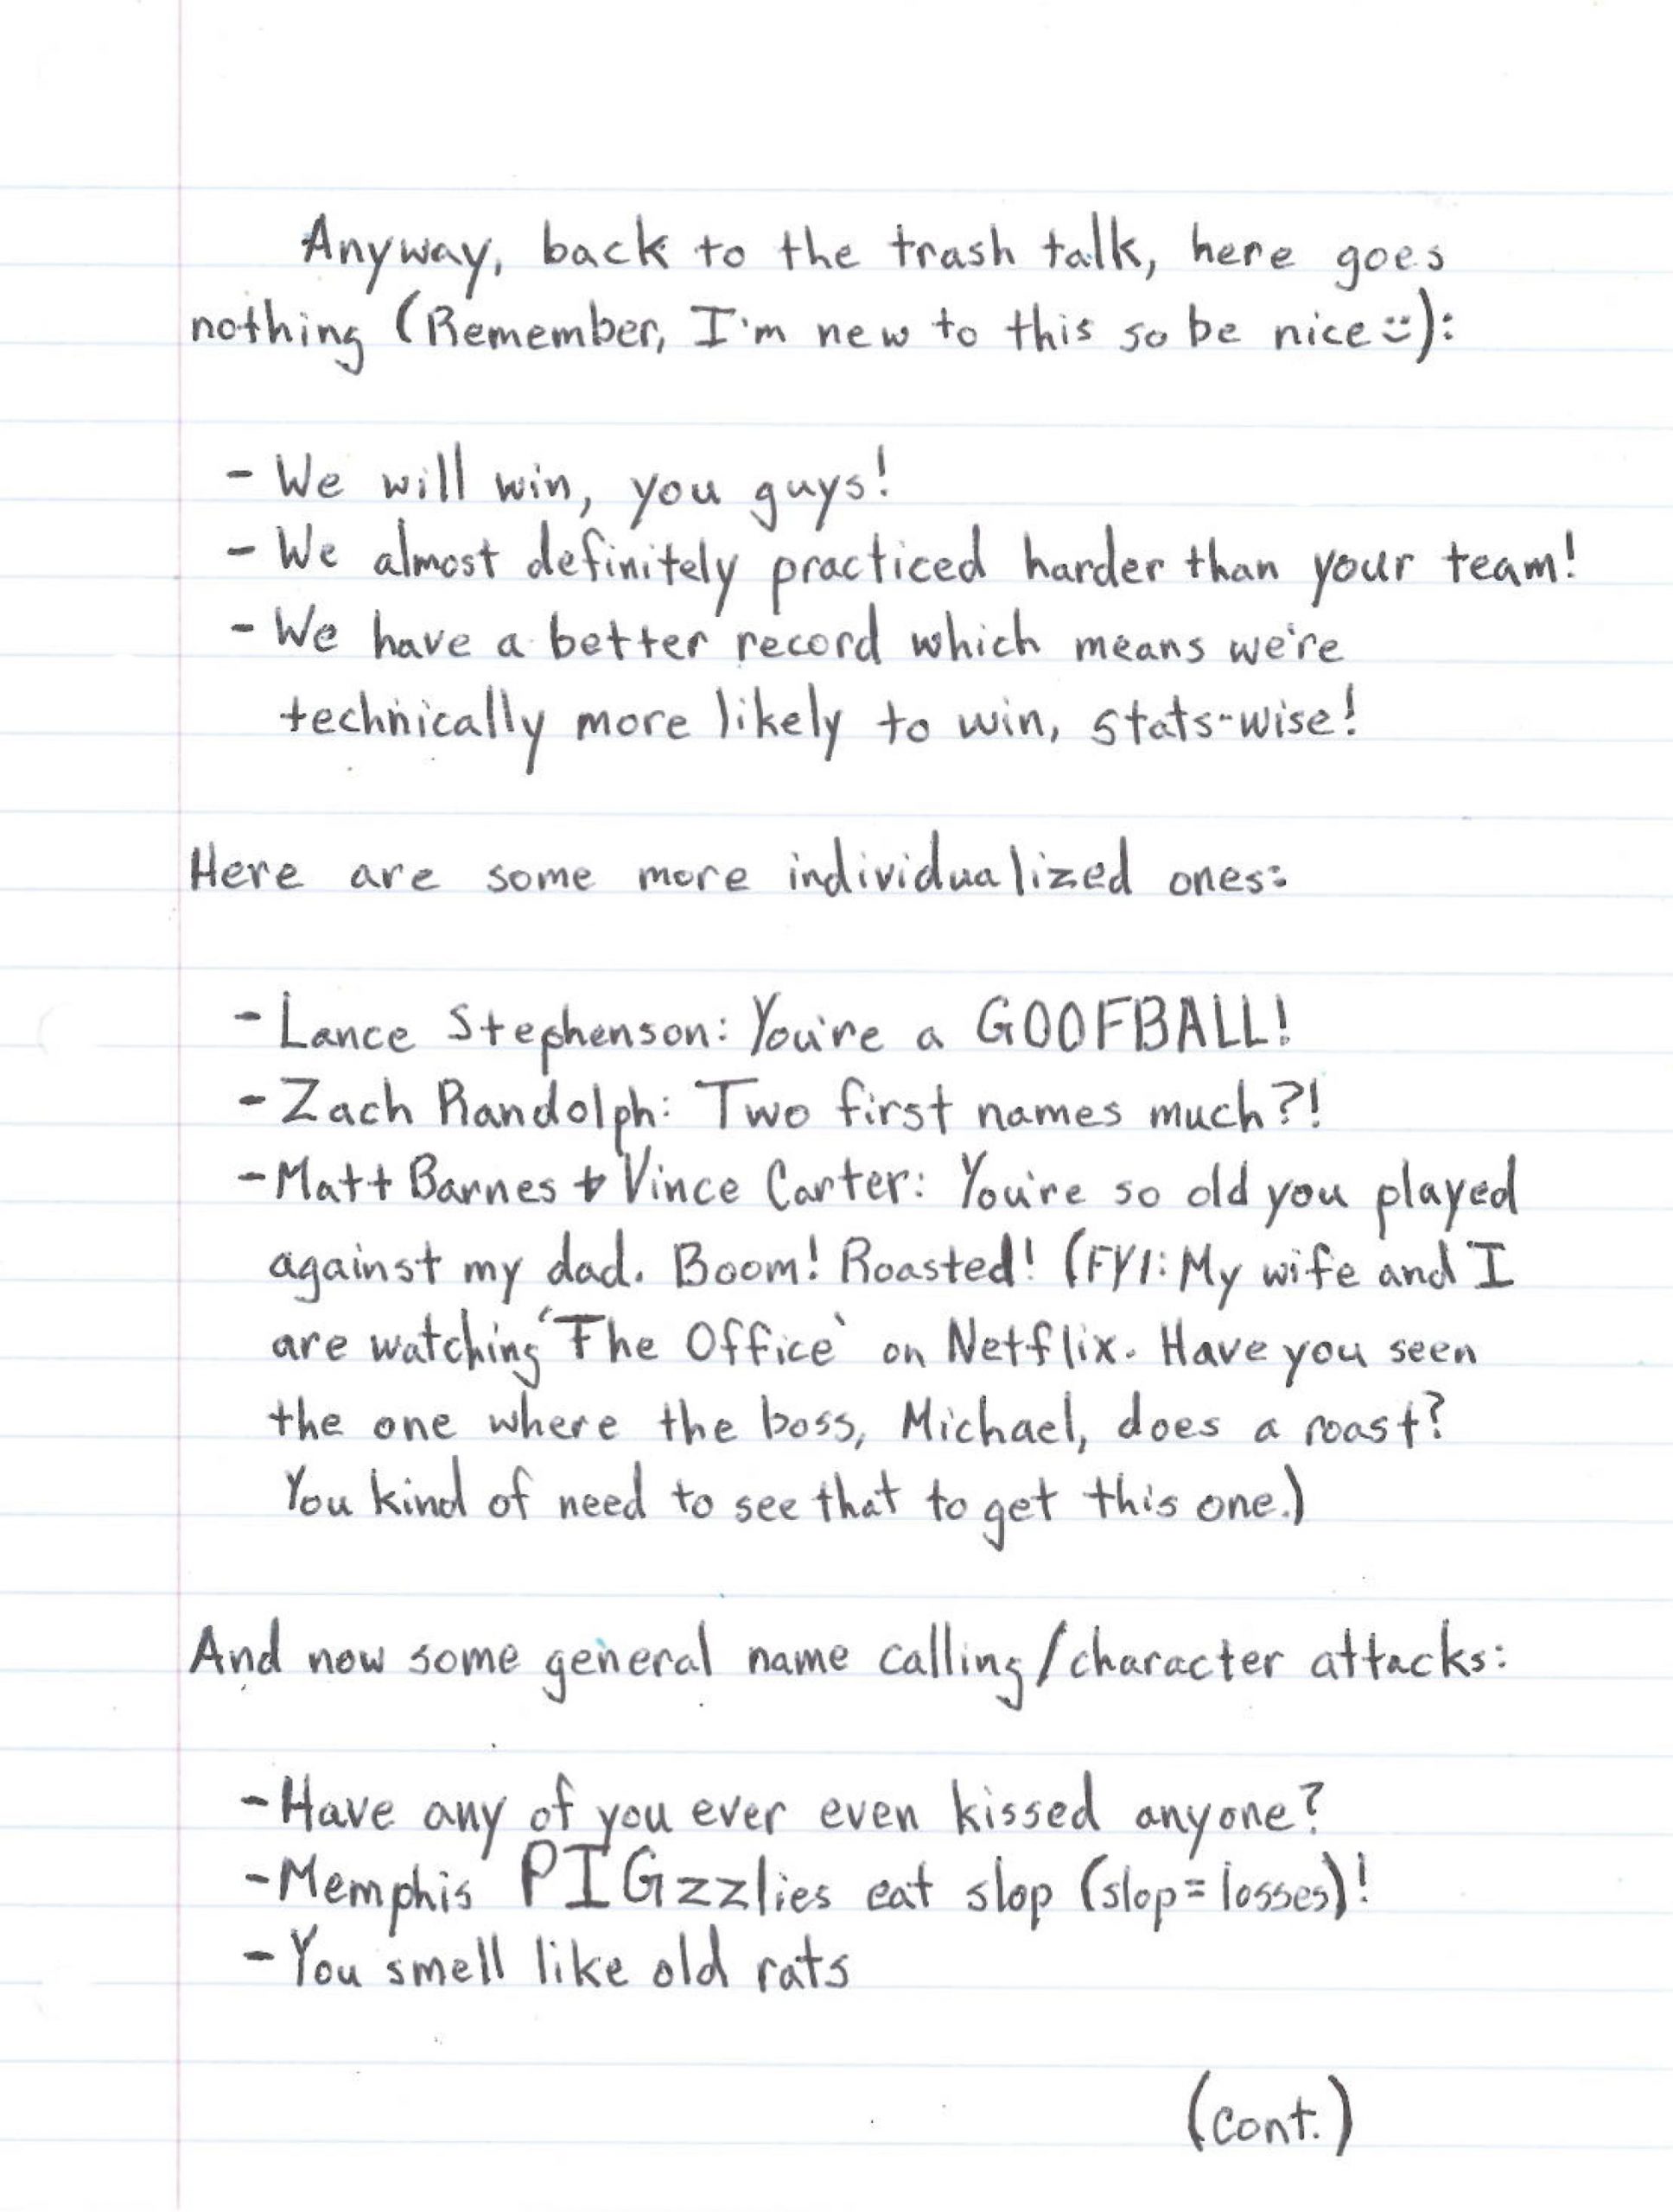 Anyway, back to the trash talk, here goes
nothing (Remember, I'm new to this so be nice :)):
- We will win, you guys!
- We almost definitely practiced harder than your team!
- We have a better record which means we're
technically more likely to win, stats-wise!
Here are some more individualized ones:
- Lance Stephenson: You're a GOOFBALL!
- Zach Randolph: Two first names much?!
- Matt Barnes + Vince Carter: You're so old you played
against my dad. Boom! Roasted! (FYI: My wife and I
are watching 'The Office' on Netflix. Have you seen
the one where the boss, Michael, does a roast?
You kind of need to see that to get this one.)
And now some general name calling/character attacks:
- Have any of you ever even kissed anyone?
- Memphis PIGzzlies eat slop (slop = losses)!
- You smell like old rats
(cont.)